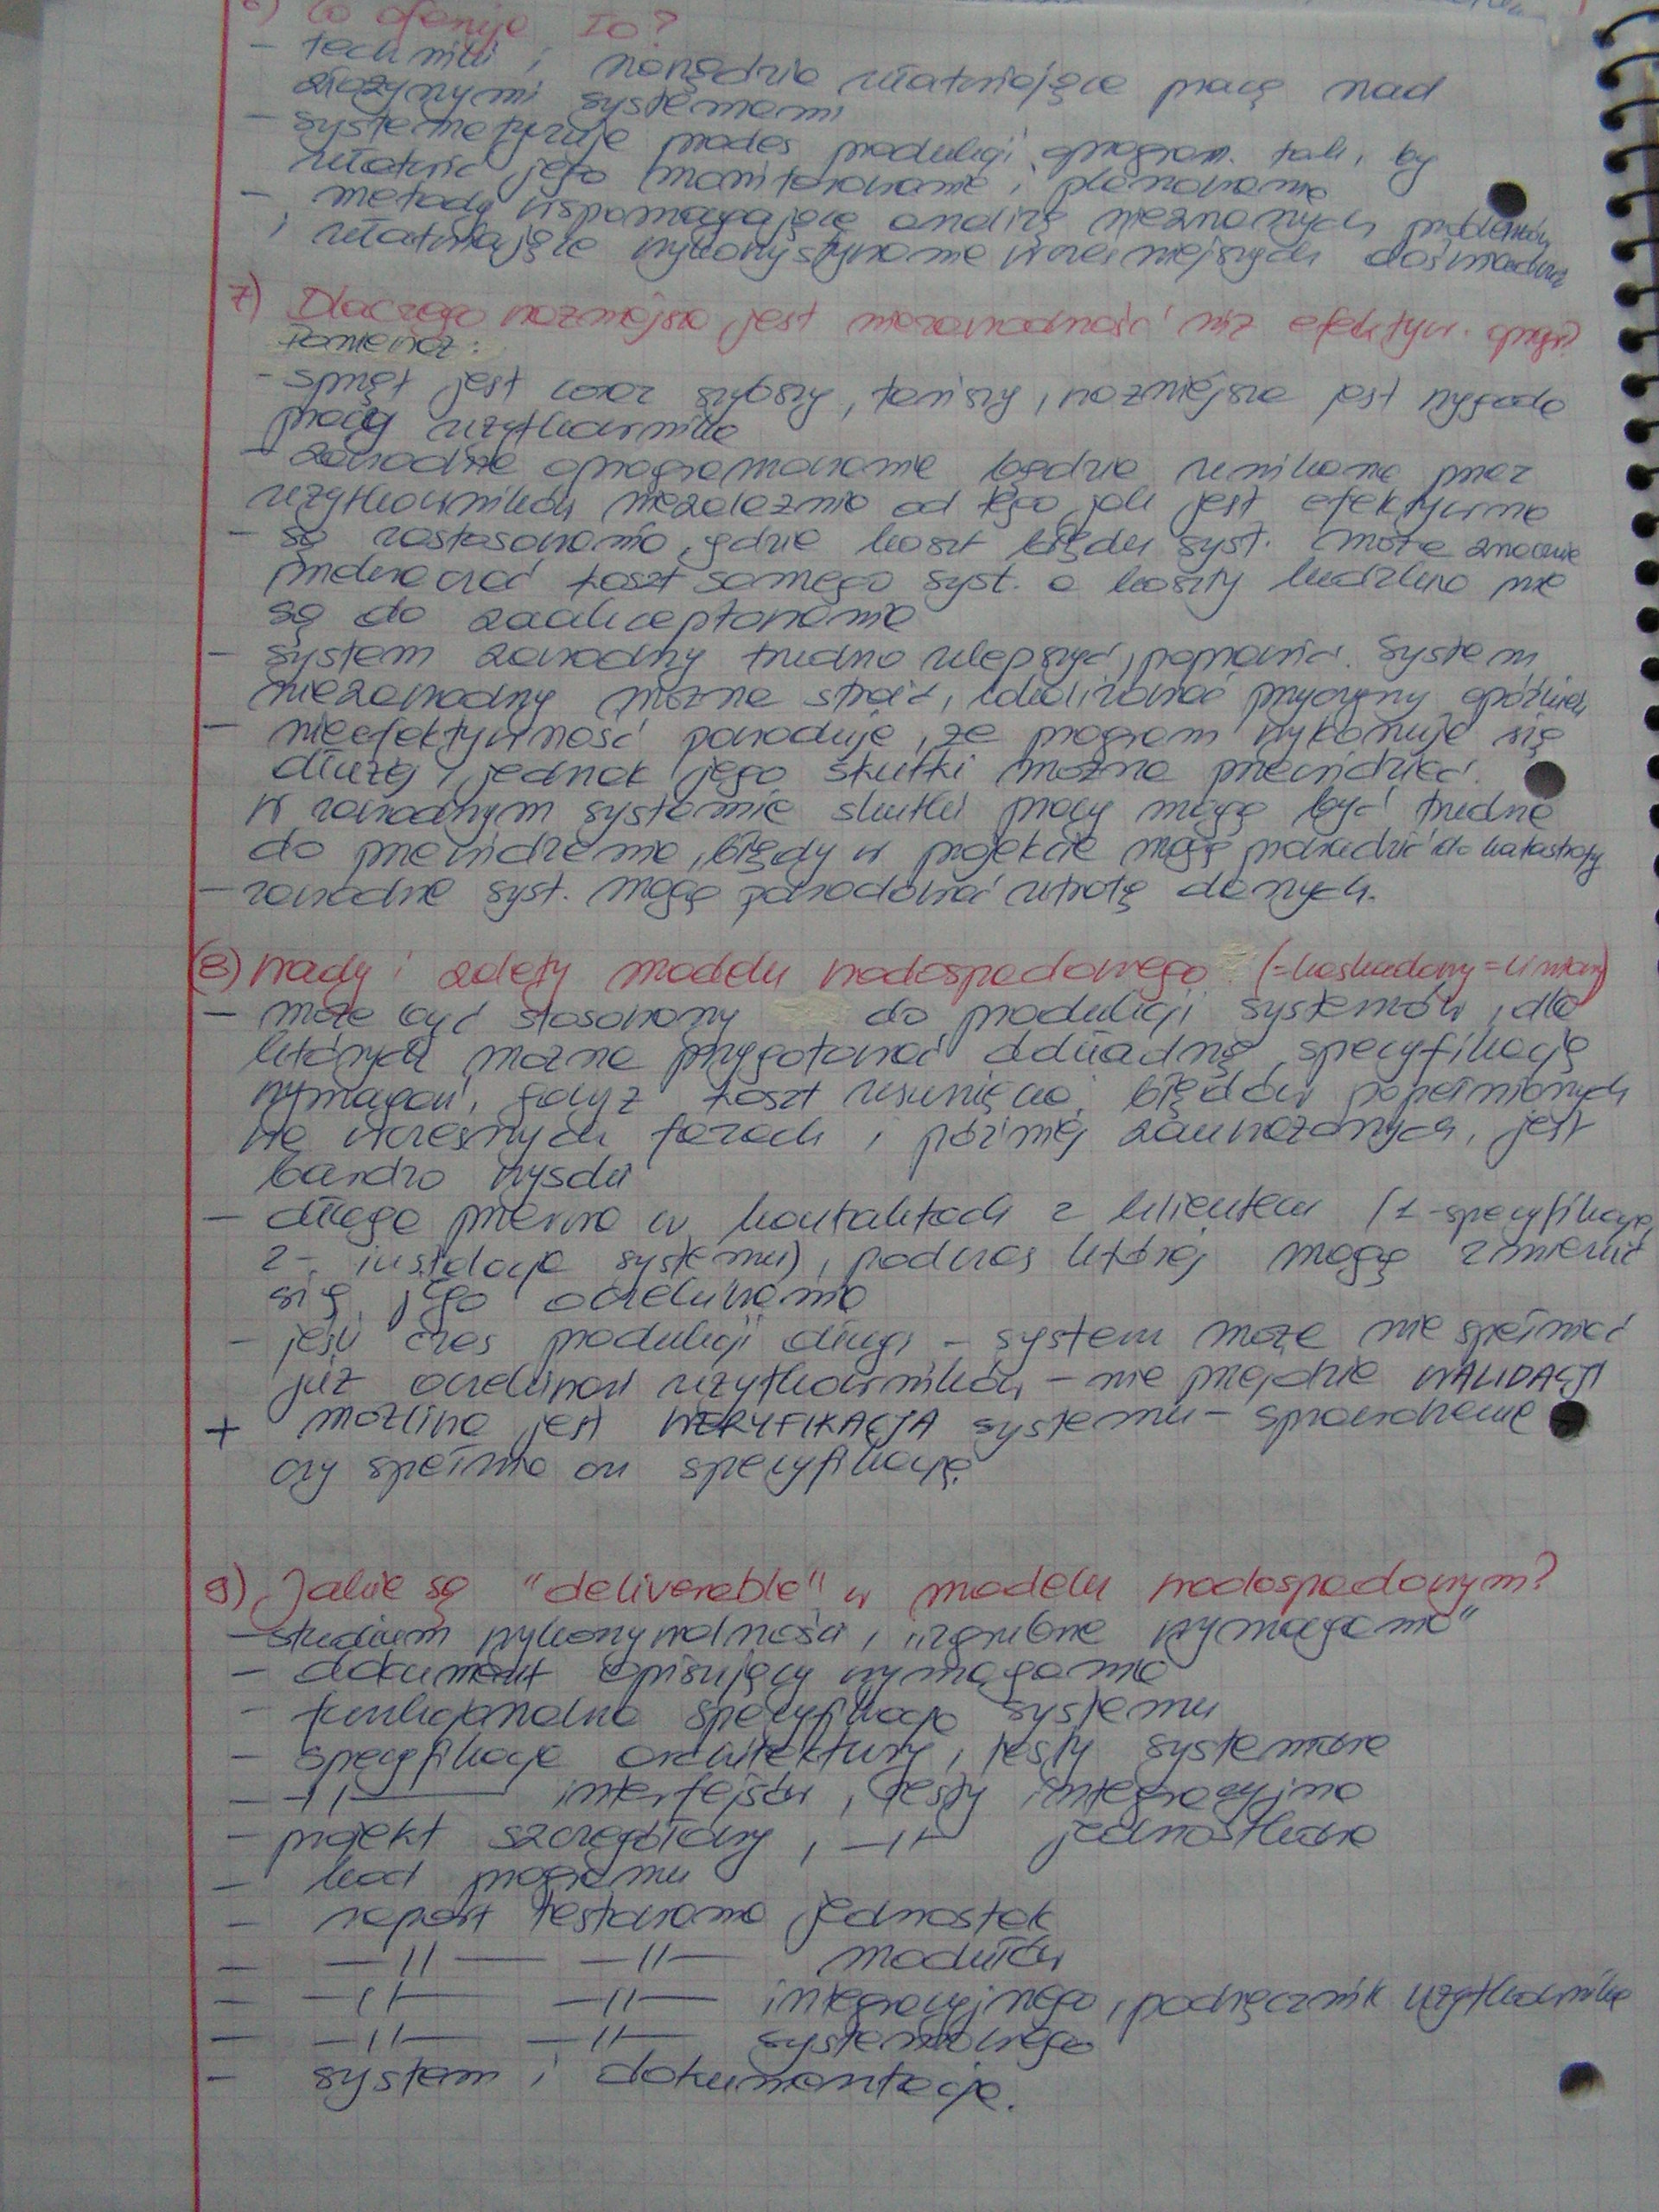 6) Co oferuje IO?
- techniki i narzędzia ułatwiające pracę nad
złożonymi systemami
- systematyzuje proces produkcji oprogram. tak, by
ułatwić jego monitorowanie i planowanie
- metody wspomagające analizę nieznanych problemów
i ułatwiające wykorzystywanie wcześniejszych doświadcz
7) Dlaczego ważniejsza jest niezawodność niż efektyw. opr?
Ponieważ:
- sprzęt jest coraz szybszy, tańszy, ważniejsza jest wygoda
pracy użytkownika
- zawodne oprogramowanie będzie unikane przez
użytkowników niezależnie od tego jak jest efektywne
- są zastosowania, gdzie koszt błędu syst. może znacznie
przekraczać koszt samego syst. a koszty ludzkie nie
są do zaakceptowania
- system zawodny trudno ulepszyć, poprawić. System
niezawodny można stroić, lokalizować przyczyny opóźnień
- nieefektywność powoduje, że program wykonuje się
dłużej, jednak jego skutki można przewidzieć.
W zawodnym systemie skutki pracy mogą być trudne
do przewidzenia, błędy w projekcie mogą prowadzić do katastrofy
- zawodne syst. mogą powodować utratę danych.
8) wady i zalety modelu wodospadowego (=kaskadowy=liniowy)
- może być stosowany do produkcji systemów, dla
których można przygotować dokładną specyfikację
wymagań, gdyż koszt usunięcia błędów popełnionych
we wczesnych fazach, później zauważonych, jest
bardzo wysoki
- długa przerwa w kontaktach z klientem (1-specyfikacja,
2- instalacja systemu), podczas której mogą zmienić
się jego oczekiwania
- jeśli czas produkcji długi - system może nie spełniać
już oczekiwań użytkowników - nie przejdzie WALIDACJI
+ możliwa jest WERYFIKACJA systemu - sprawdzenie
czy spełnia on specyfikację.
9) Jakie są "deliverable" w modelu wodospadowym?
- studium wykonywalności, „zgrubne wymagania"
- dokument opisujący wymagania
- funkcjonalna specyfikacja systemu
- specyfikacja architektury, testy systemowe
- —||— interfejsów, testy integracyjne
- projekt szczegółowy, —||— jednostkowe
- kod programu
- raport testowania jednostek
- —||— —||— modułów
- —||— —||— integracyjnego, podręcznik użytkownika
- —||— —||— systemowego
- system i dokumentacja.